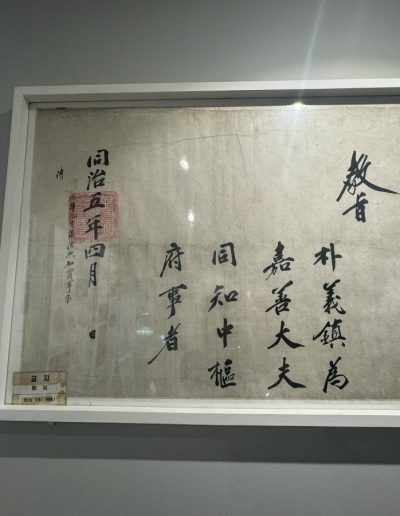 敎旨
朴義鎮為
嘉善大夫
同知中樞
府事者
同治五年四月 日
교 지
敎 旨